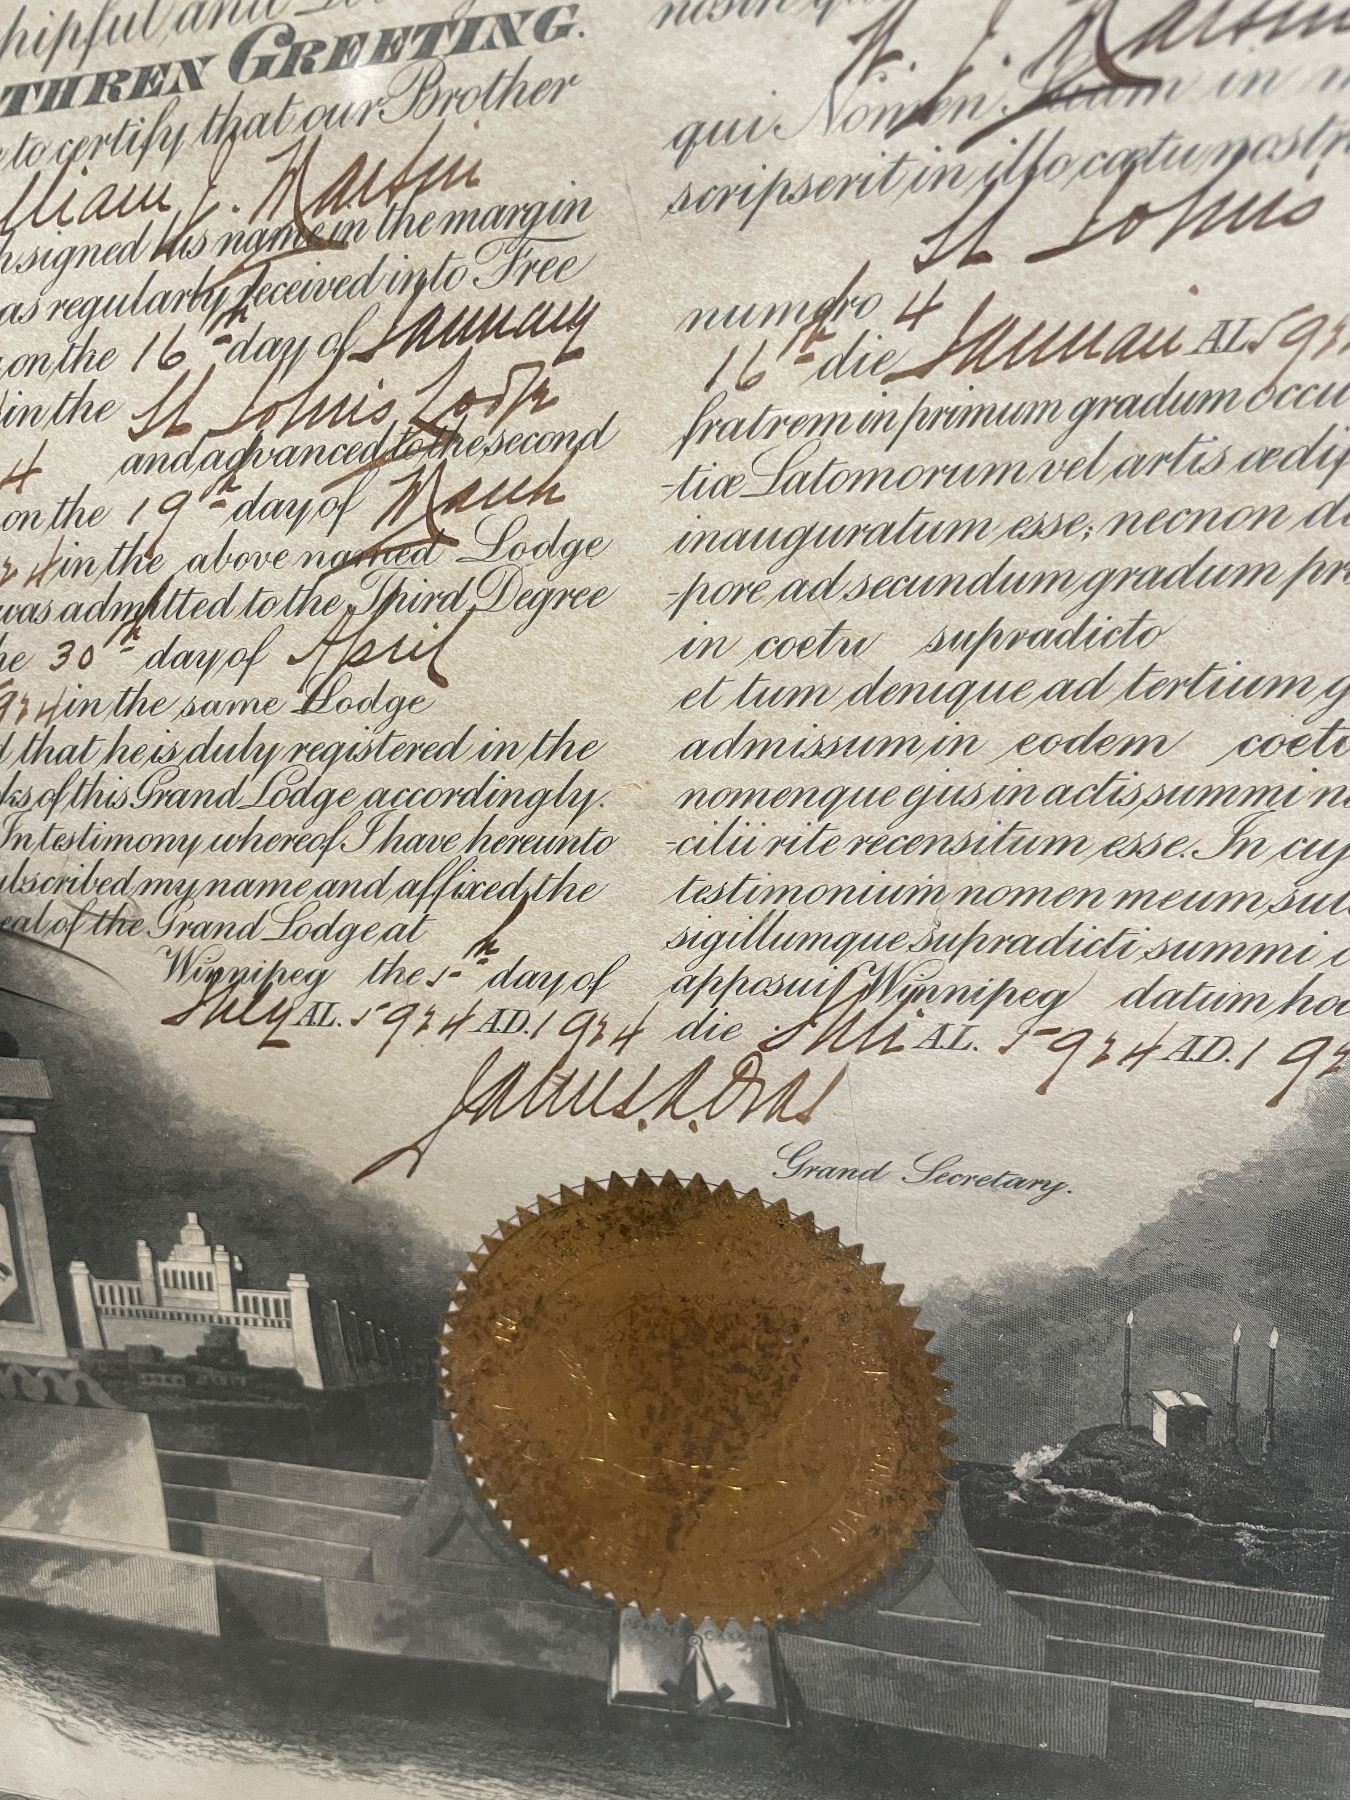 hipful and
THREN GREETING.
to certify that our Brother
lliam J. Martin
signed his name in the margin
as regularly received into Free
on the 16th day of January
in the St Johns Lodge
4 and advanced to the second
on the 19th day of March
24 in the above named Lodge
was admitted to the Third Degree
he 30th day of April
924 in the same Lodge
d that he is duly registered in the
ks of this Grand Lodge accordingly.
In testimony whereof I have hereunto
ubscribed my name and affixed the
eal of the Grand Lodge at
Winnipeg the 1st day of
July AL. 5924 AD. 1924
W. J. Martin
qui Nomen Suum in
scripserit in illo cœtu nostr
St Johns
numero 4
16th die Januari AL 592
fratrem in primum gradum occu
-tiæ Latomorum vel artis ædif
inauguratum esse; necnon d
-pore ad secundum gradum pr
in coetu supradicto
et tum denique ad tertium g
admissum in eodem coetu
nomenque ejus in actis summi
-cilii rite recensitum esse. In cuj
testimonium nomen meum su
sigillumque supradicti summi c
apposui Winnipeg datum hoc
die Juli A.L. 5924 A.D. 192
Grand Secretary.